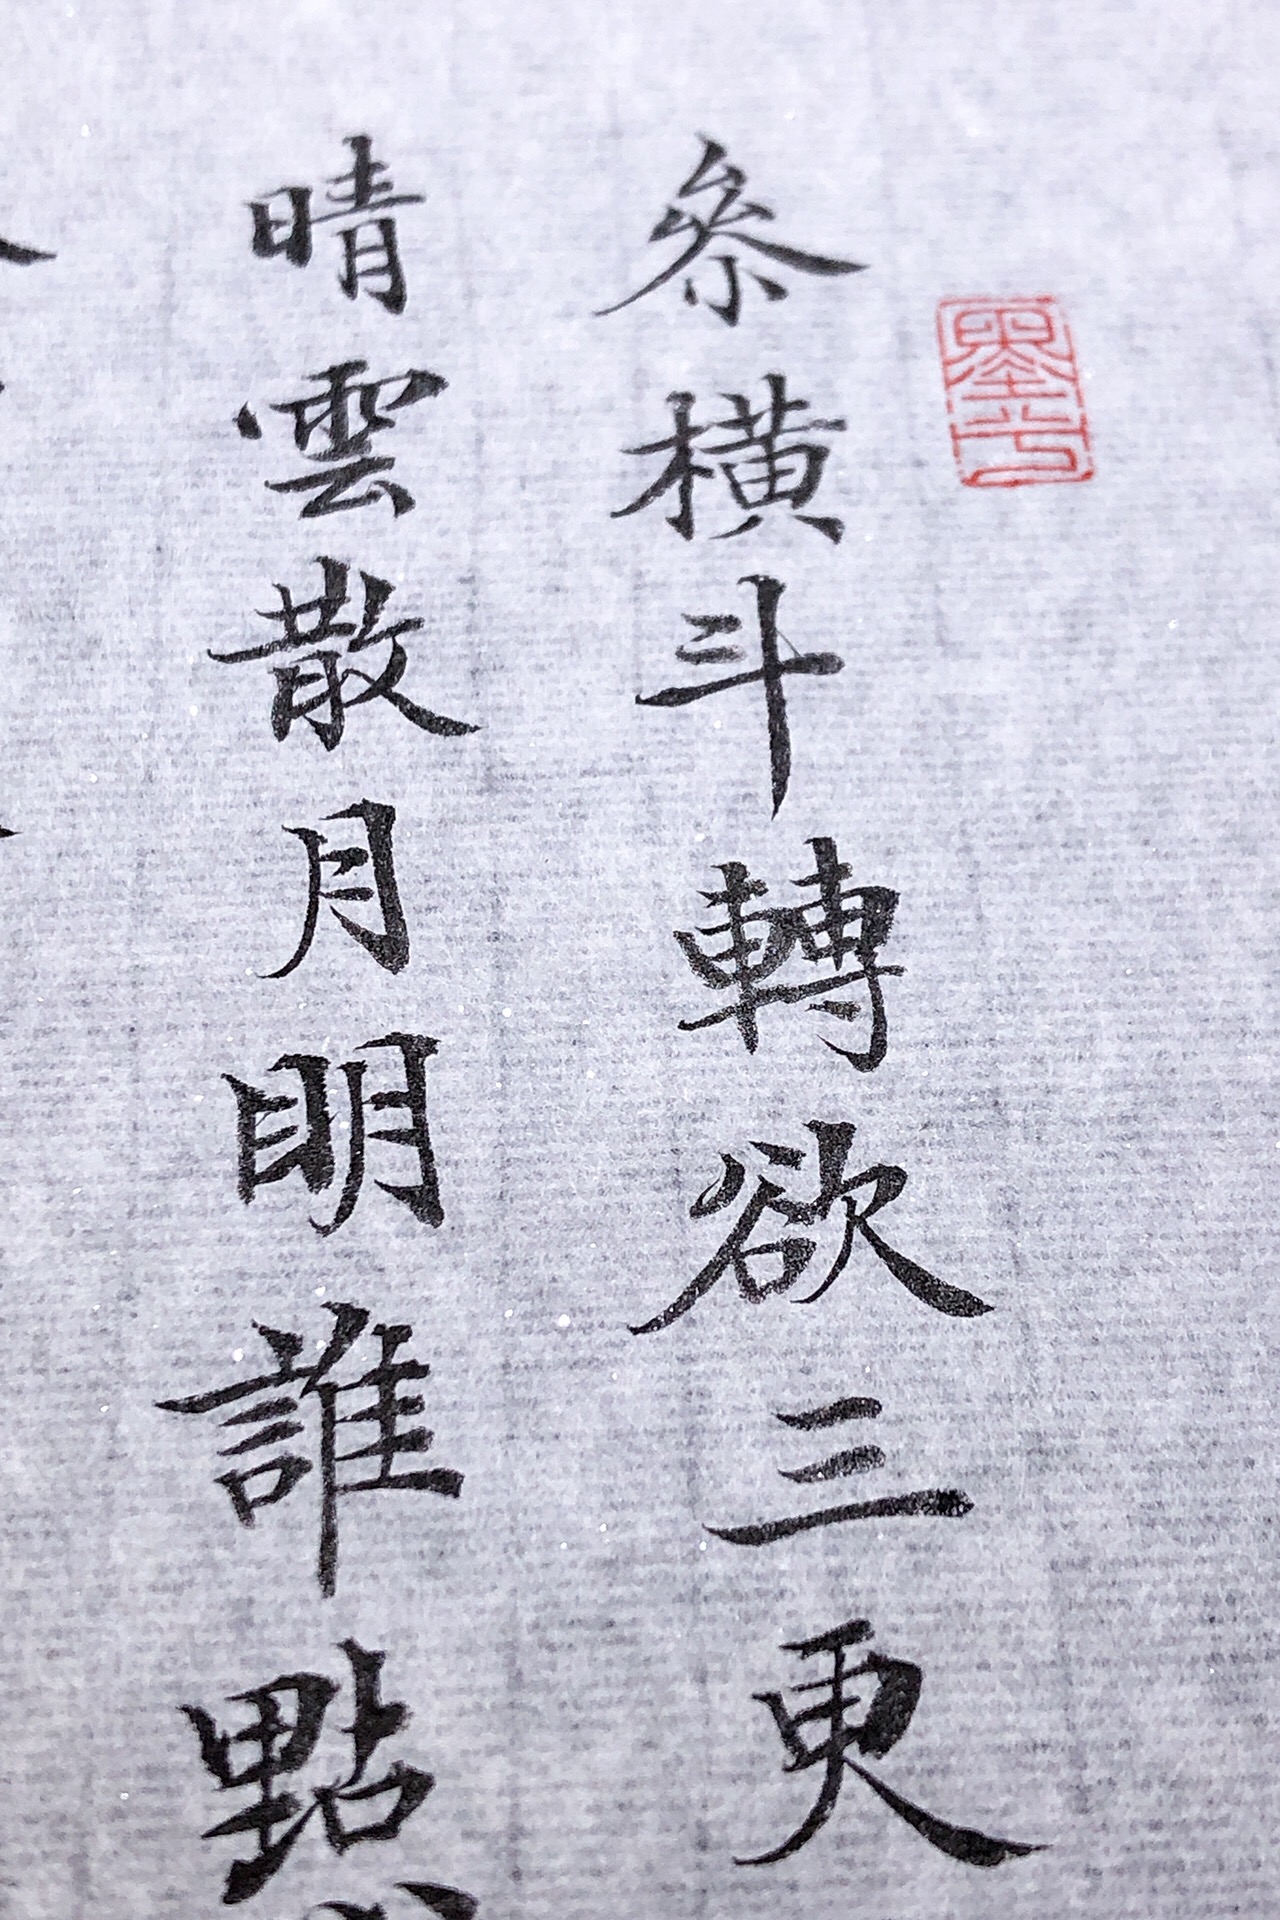 參橫斗轉欲三更
晴雲散月明誰點